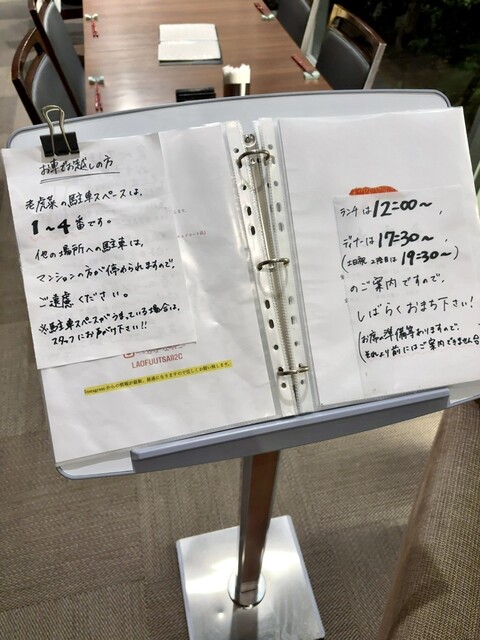 お車でお越しの方
老虎菜の駐車スペースは、
1~4番です。
他の場所への駐車は、
マンションの方が停められますので、
ご遠慮ください。
※駐車スペースがうまっている場合は、
スタッフにお声がけ下さい!!
LAOFUUTSAI12C
Instagramからの情報が最新、最速になりますので宜しくお願い致します。
ランチは12:00~、
ディナーは17:30~、
(土日祝 2部目は19:30~)
のご案内ですので、
しばらくおまち下さい!
(お席の準備等ありますので、
それより前にはご案内できません